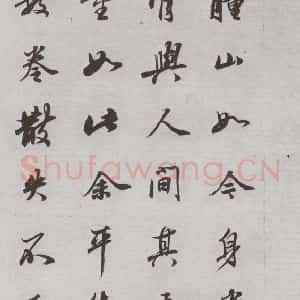 瞳山如今身
與人間其
如此余平
卷散失不
Shufawang.CN